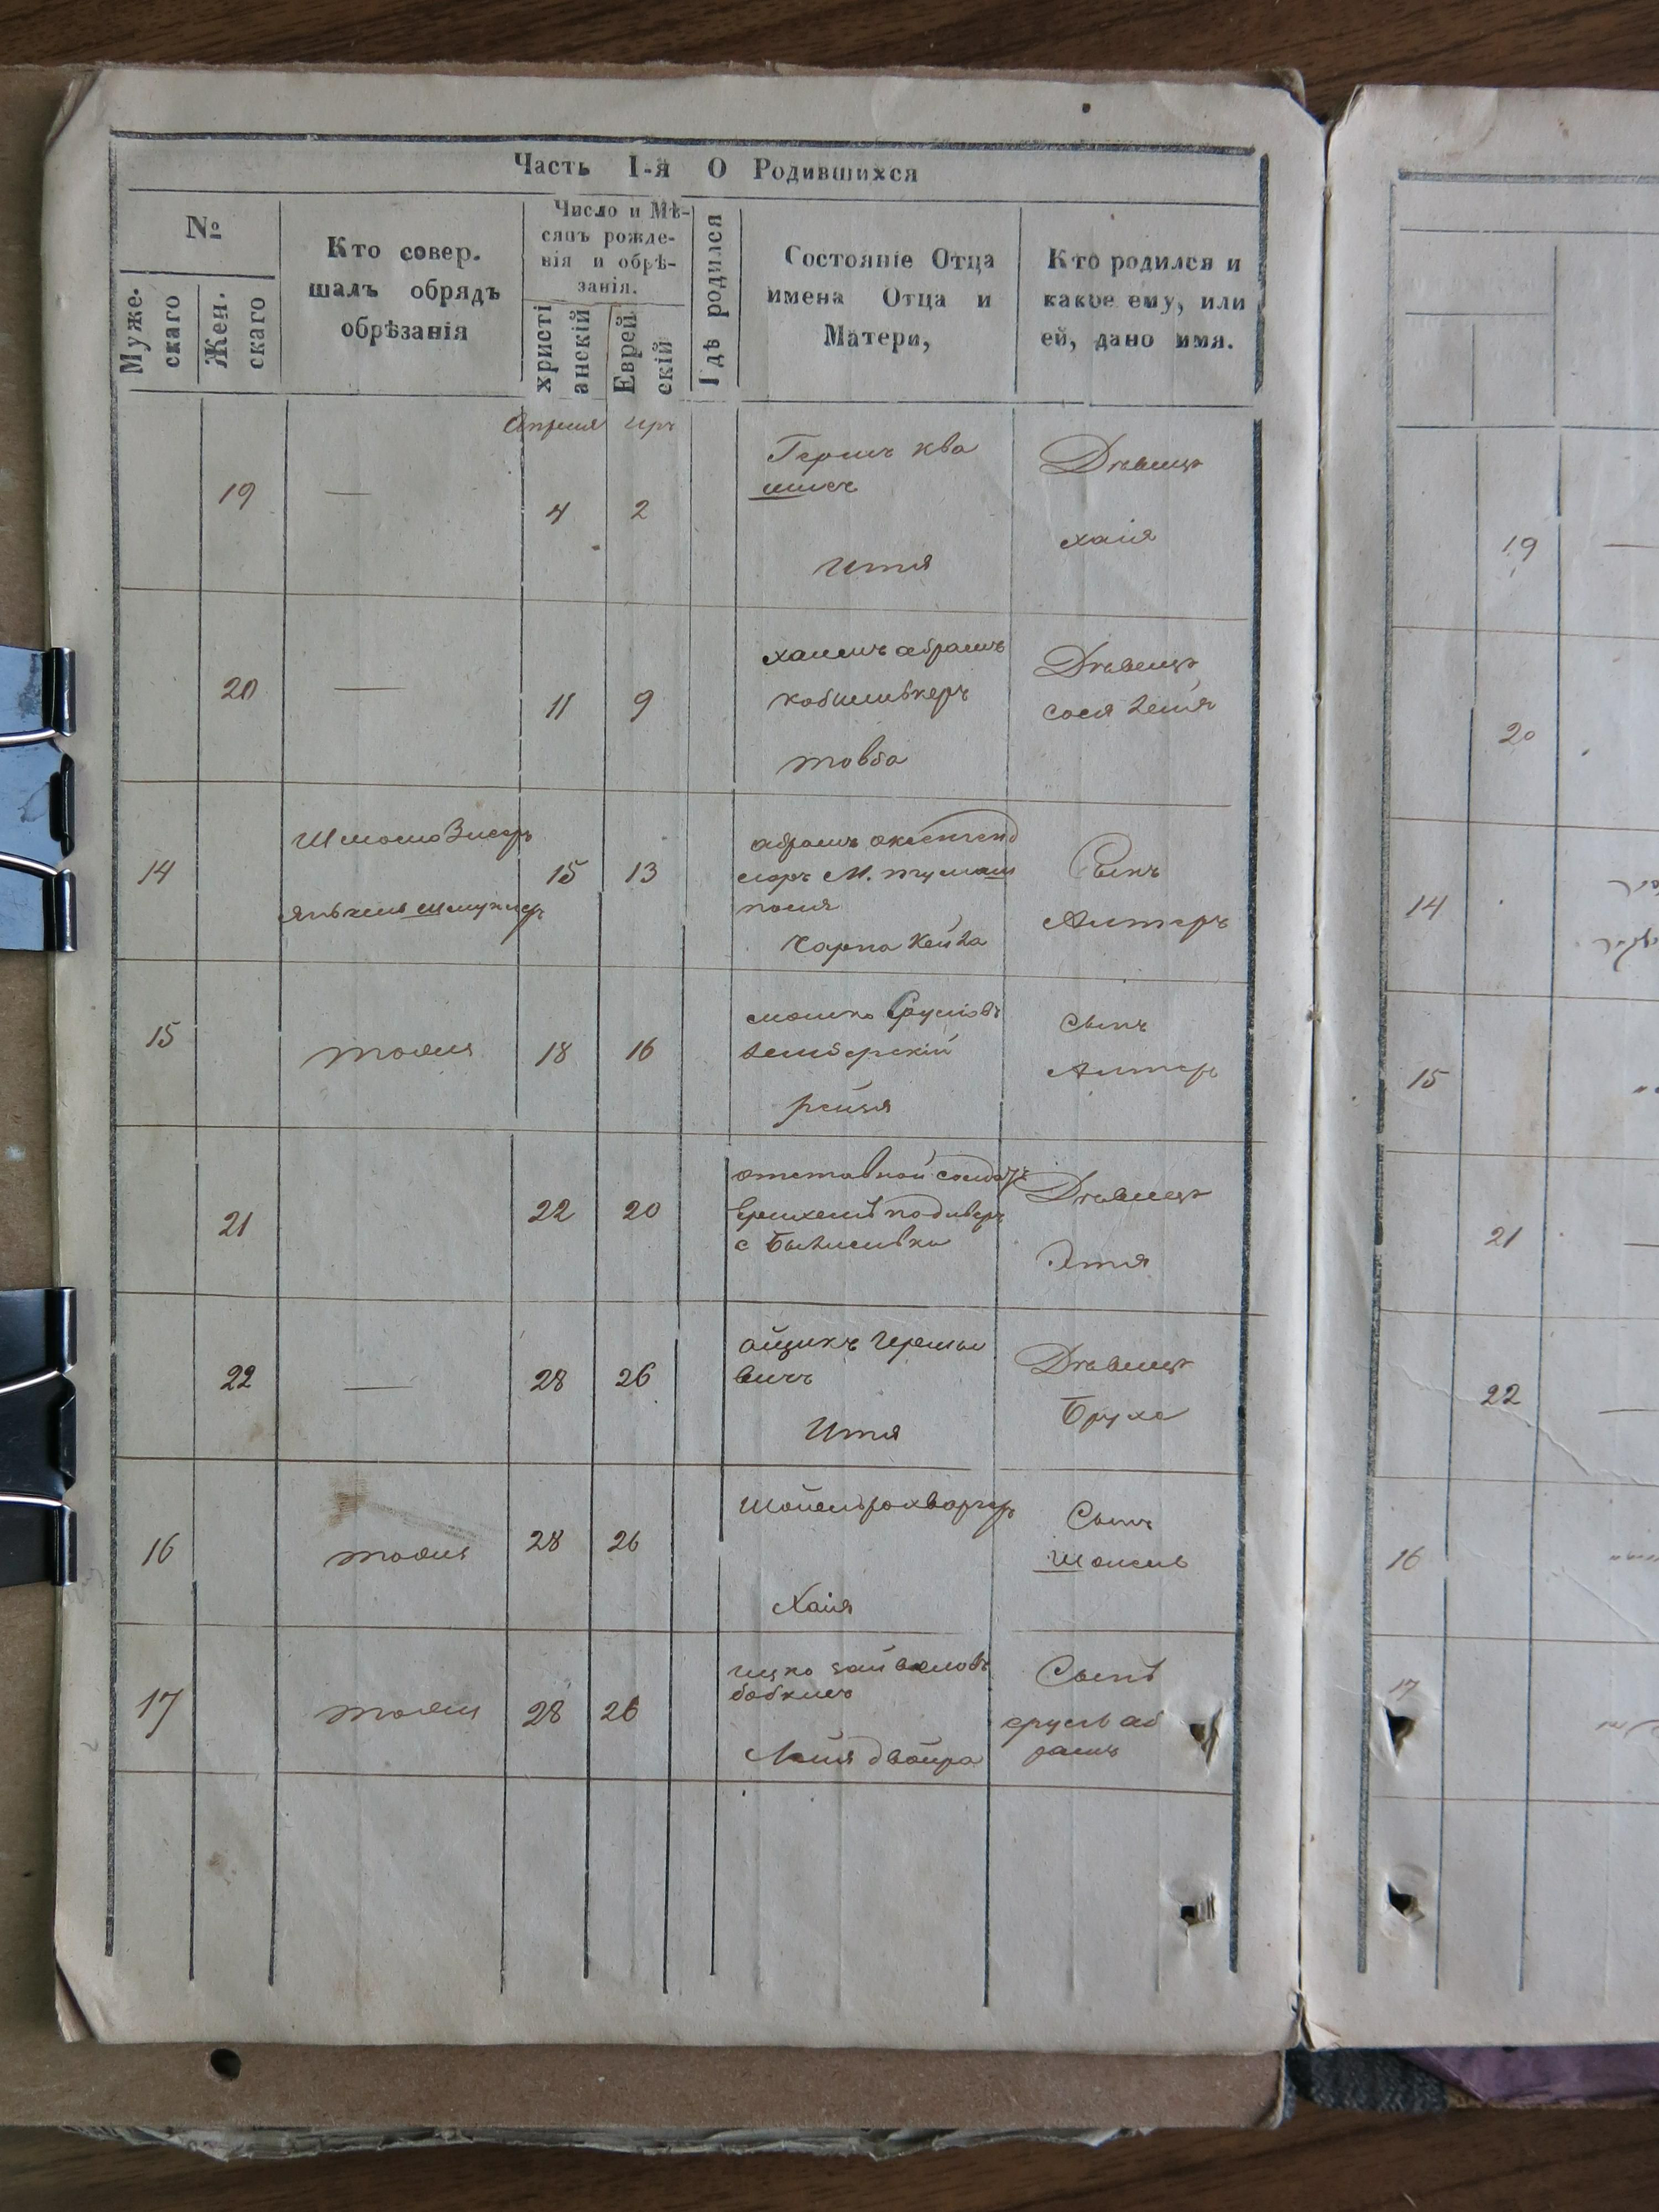 Часть I-я О Родившихся
№
Муже-
скаго
Жен.
скаго
Кто совер.
шалъ обрядъ
обрѣзанія
Число и Мѣ-
сяцъ рожде-
нія и обрѣ-
занія.
христі
анскій
Еврей
скій
Гдѣ родился
Состояніе Отца
имена Отца и
Матери,
Кто родился и
какое ему, или
ей, дано имя.
Апреля Иръ
19
—
4
2
Гершъ ква
шисъ
Итя
Дѣвица
хаія
20
—
11
9
хаимъ абрамъ
кобиливкеръ
товба
Дѣвица
сося Зелія
14
Шлиомо Зисеръ
Янкель шмуклеръ
15
13
абрамъ
М.
поля
Чарна Кейла
Сынъ
Алтеръ
15
тожи
18
16
мошко Сруліовъ
Землерскій
рейзя
сынъ
Алтеръ
21
22
20
отставной солдатъ
с
Дѣвица
Этя
22
—
28
26
айзикъ Гершко
вичъ
Итя
Дѣвица
Бруха
16
тожи
28
26
Шойель рохваргеръ
Хаія
Сынъ
Шоиель
17
тожи
28
26
ицко зайвеловъ
бобкисъ
Лейя двойра
Сынъ
срулъ аб
рамъ
19
—
20
14
15
21
—
22
—
16
17